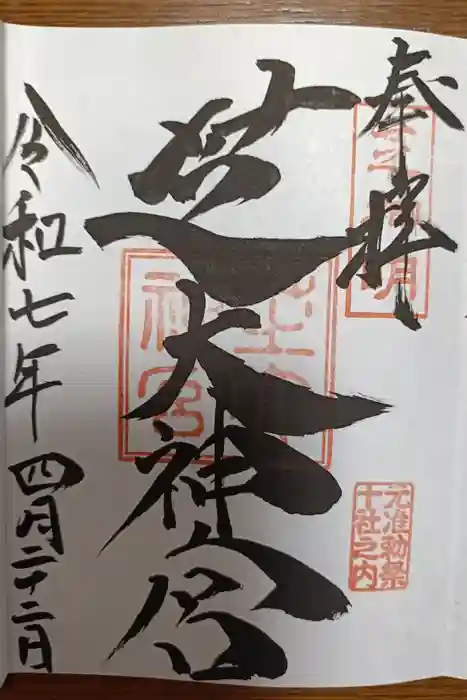 奉拝
芝大神宮
令和七年四月二十二日
元准勅祭
十社之内